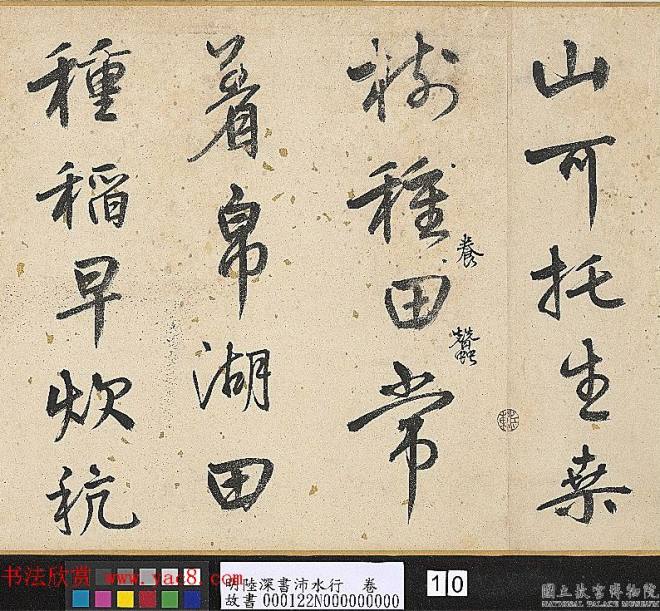 山可托生桒
樹種田常
養
蠶
着帛湖田
種稻早炊秔
书法欣赏 www.yac8.com
明陸深書沛水行 卷
故書 000122N000000000
10
國立故宮博物院
NATIONAL PALACE MUSEUM